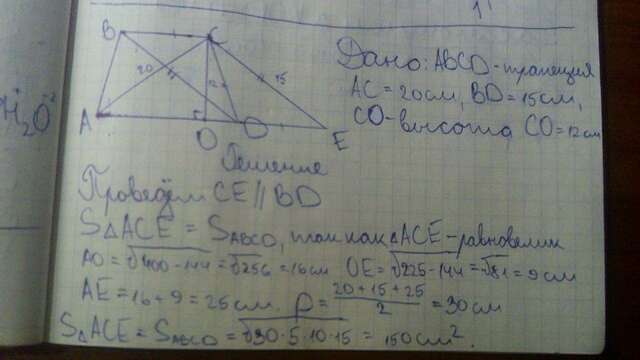 1
B C
20 12 15
A O D E
H₂⁺O⁻²
Дано: ABCD-трапеция
AC = 20см, BD = 15см,
CO-высота CO = 12см
Решение
Проведём CE || BD
S△ACE = SABCD, так как △ACE-равновелик
AO = √400-144 = √256 = 16см OE = √225-144 = √81 = 9см
AE = 16+9 = 25см. p = 20+15+25/2 = 30см
S△ACE = SABCD = √30·5·10·15 = 150см².